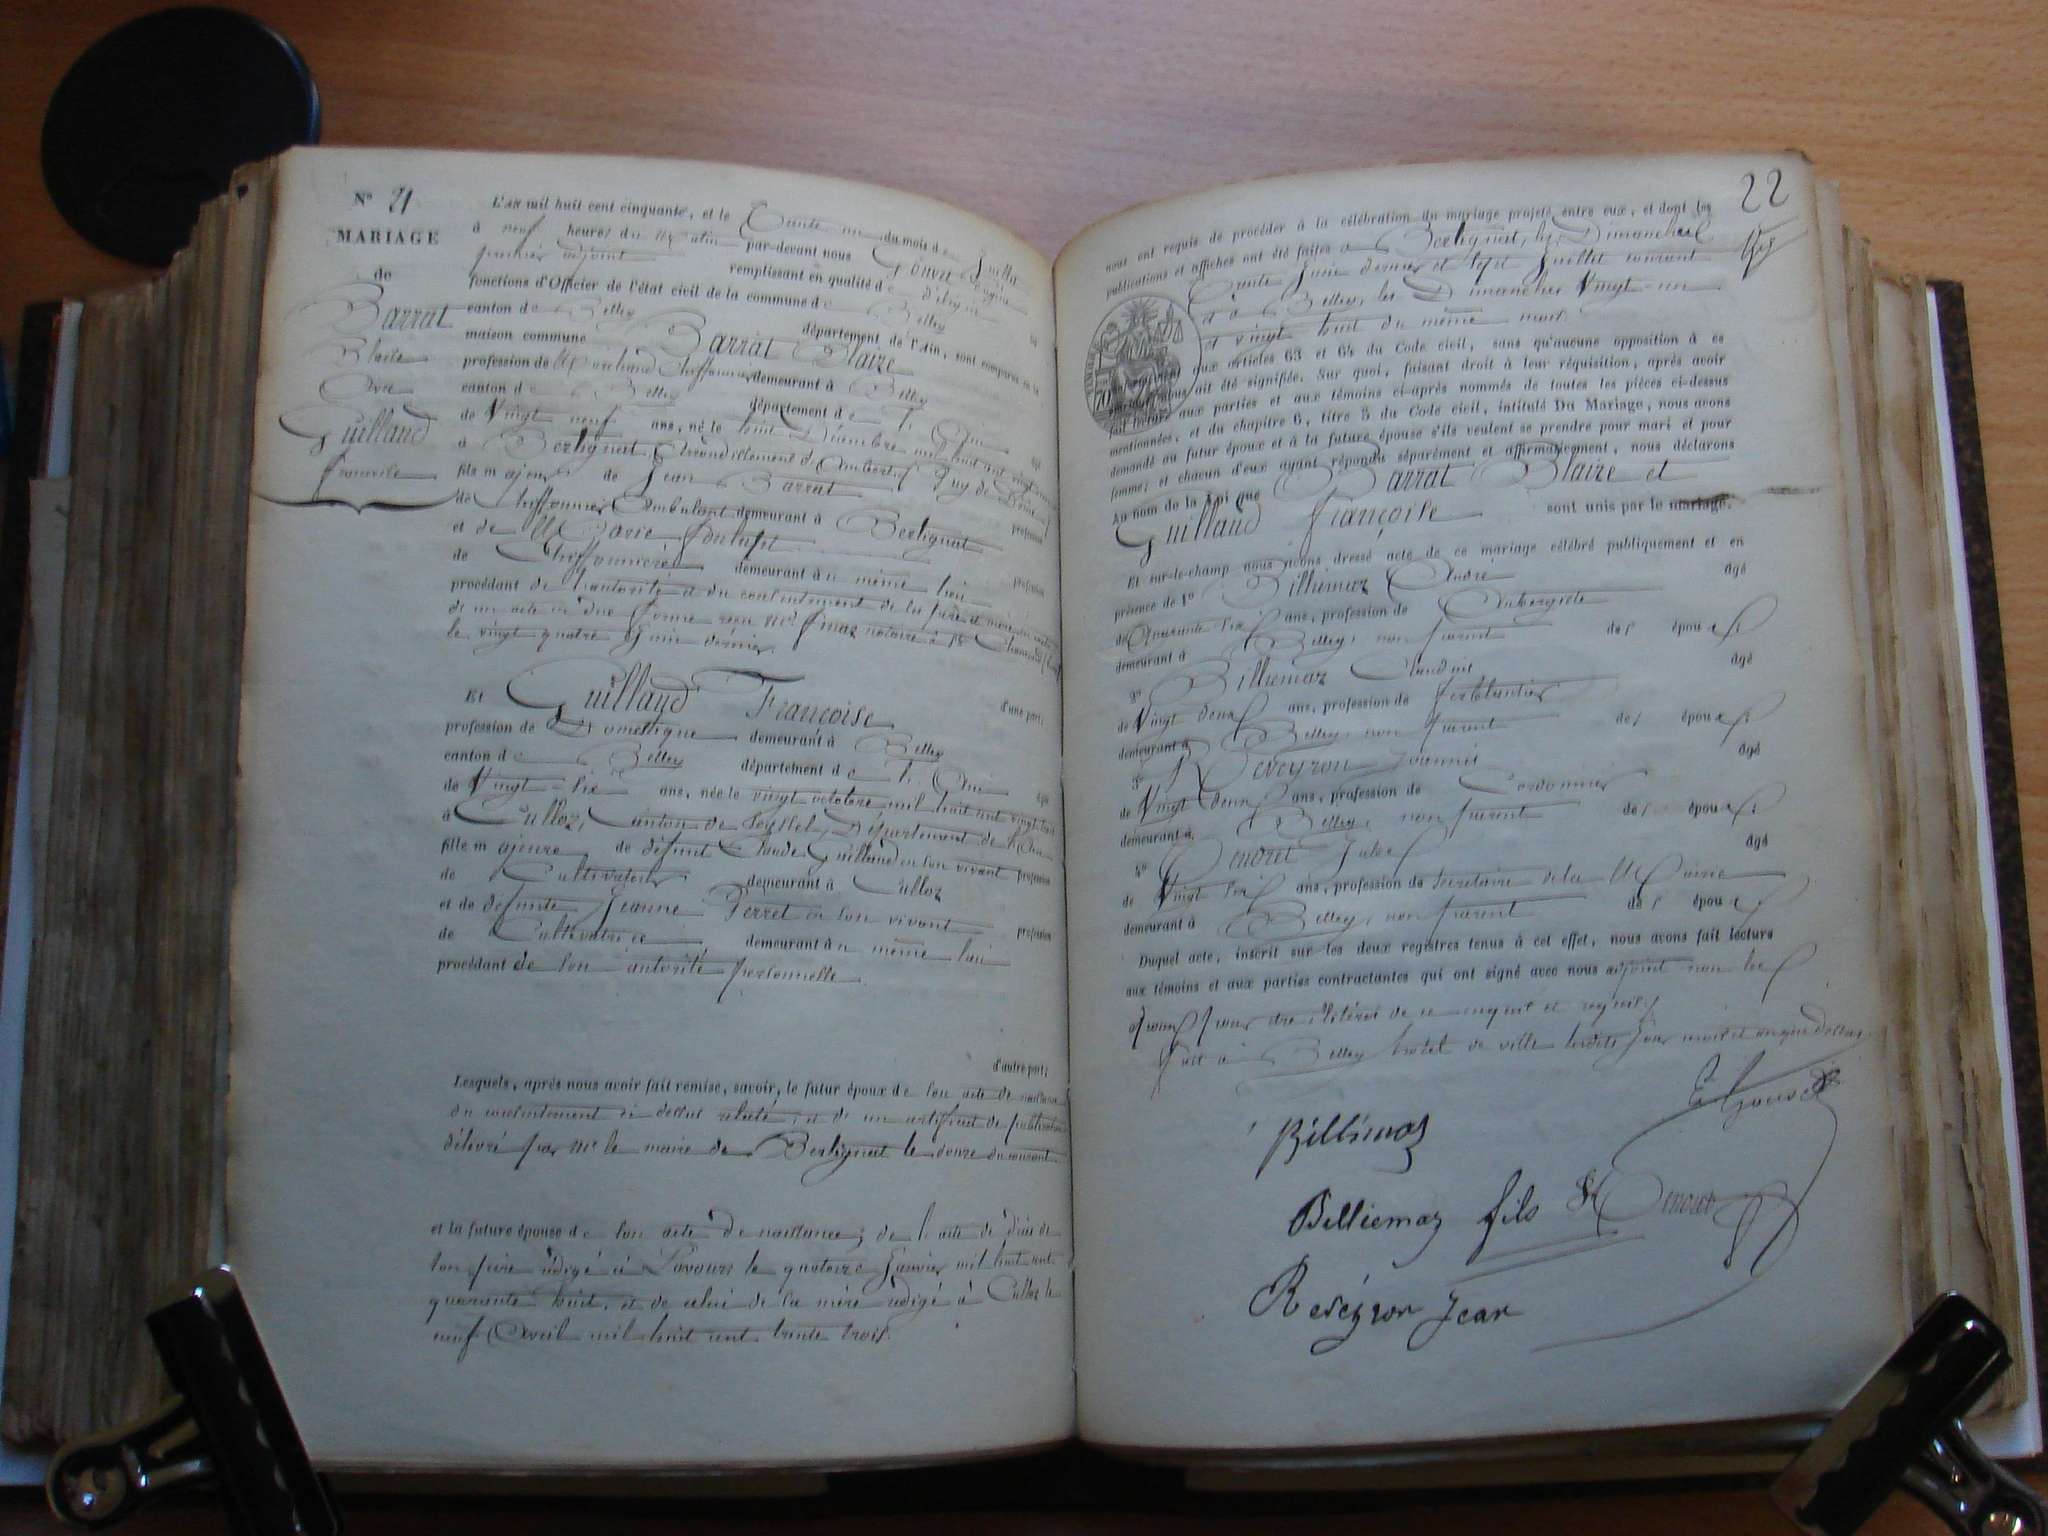 N° 21
MARIAGE
de
Barrat
Blaise
Avec
Guilland
Françoise
L'an mil huit cent cinquante, et le Trente un du mois de Juillet
à neuf heures du Matin par-devant nous
premier adjoint remplissant en qualité de
fonctions d'Officier de l'état civil de la commune de Belley
canton de Belley département de l'Ain, sont comparus en la
maison commune Barrat Blaise
profession de Marchand Chiffonnier demeurant à Belley
canton de Belley département de l'Ain âgé
de Vingt neuf ans, né le huit Décembre mil huit cent vingt
à Bertignat, Arrondissement d'Ambert, Puy de Dôme
fils majeur de Jean Barrat profession
de Chiffonnier Ambulant demeurant à Bertignat
et de Marie profession
de Chiffonnière demeurant au même lieu
procédant de l'autorité et du consentement de ses père et mère en vertu
de un acte en due forme reçu Me notaire à St
le vingt quatre Juin dernier
d'une part;
Et Guilland Françoise
profession de Domestique demeurant à Belley
canton de Belley département de l'Ain âgée
de Vingt-six ans, née le vingt octobre mil huit cent vingt trois
à Culloz, Canton de Seyssel, Département de l'Ain
fille majeure de défunt Claude Guilland en son vivant profession
de Cultivateur demeurant à Culloz
et de défunte Jeanne Perret en son vivant profession
de Cultivatrice demeurant au même lieu
procédant de son autorité personnelle
d'autre part;
Lesquels, après nous avoir fait remise, savoir, le futur époux de son acte de naissance
du consentement ci dessus relaté; et de un certificat de publication
délivré par Mr le maire de Bertignat le douze du courant
et la future épouse de son acte de naissance; de l'acte de décès de
son père rédigé à Lavours le quatorze Janvier mil huit cent
quarante huit, et de celui de sa mère rédigé à Culloz le
neuf Avril mil huit cent trente trois.
22
nous ont requis de procéder à la célébration du mariage projeté entre eux, et dont les
publications et affiches ont été faites à Bertignat, les Dimanches
trente Juin dernier et sept Juillet courant
et à Belley, les Dimanches Vingt-un
et vingt huit du même mois.
aux articles 63 et 64 du Code civil, sans qu'aucune opposition à ce
nous ait été signifiée. Sur quoi, faisant droit à leur réquisition, après avoir
fait lecture aux parties et aux témoins ci-après nommés de toutes les pièces ci-dessus
mentionnées, et du chapitre 6, titre 5 du Code civil, intitulé Du Mariage, nous avons
demandé au futur époux et à la future épouse s'ils veulent se prendre pour mari et pour
femme; et chacun d'eux ayant répondu séparément et affirmativement, nous déclarons
Au nom de la Loi que Barrat Blaise et
Guilland Françoise sont unis par le mariage.
Et sur-le-champ nous avons dressé acte de ce mariage célébré publiquement et en
présence de 1° Billiemaz André âgé
de Quarante six ans, profession de Aubergiste
demeurant à Belley, non parent des époux;
2° Billiemaz Claudius âgé
de Vingt deux ans, profession de Ferblantier
demeurant à Belley, non parent des époux;
3° Reveyron Joannès âgé
de Vingt deux ans, profession de Cordonnier
demeurant à Belley, non parent des époux;
4° Jules âgé
de Vingt six ans, profession de Secrétaire de la Mairie
demeurant à Belley, non parent des époux;
Duquel acte, inscrit sur les deux registres tenus à cet effet, nous avons fait lecture
aux témoins et aux parties contractantes qui ont signé avec nous adjoint non les
époux pour être illitérés de ce enquis et requis.
fait à Belley hotel de ville lesdits jour mois et an que dessus
Billiemaz
Billiemaz fils
Reveyron Jean